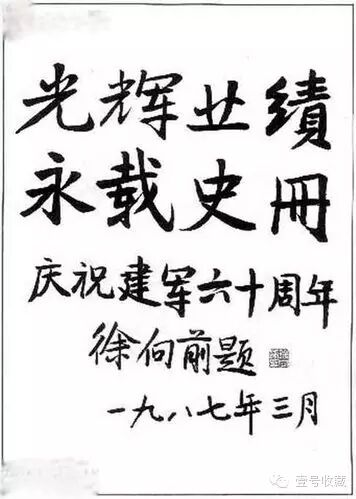 光辉业績
永载史冊
庆祝建军六十周年
徐向前题
一九八七年三月
壹号收藏